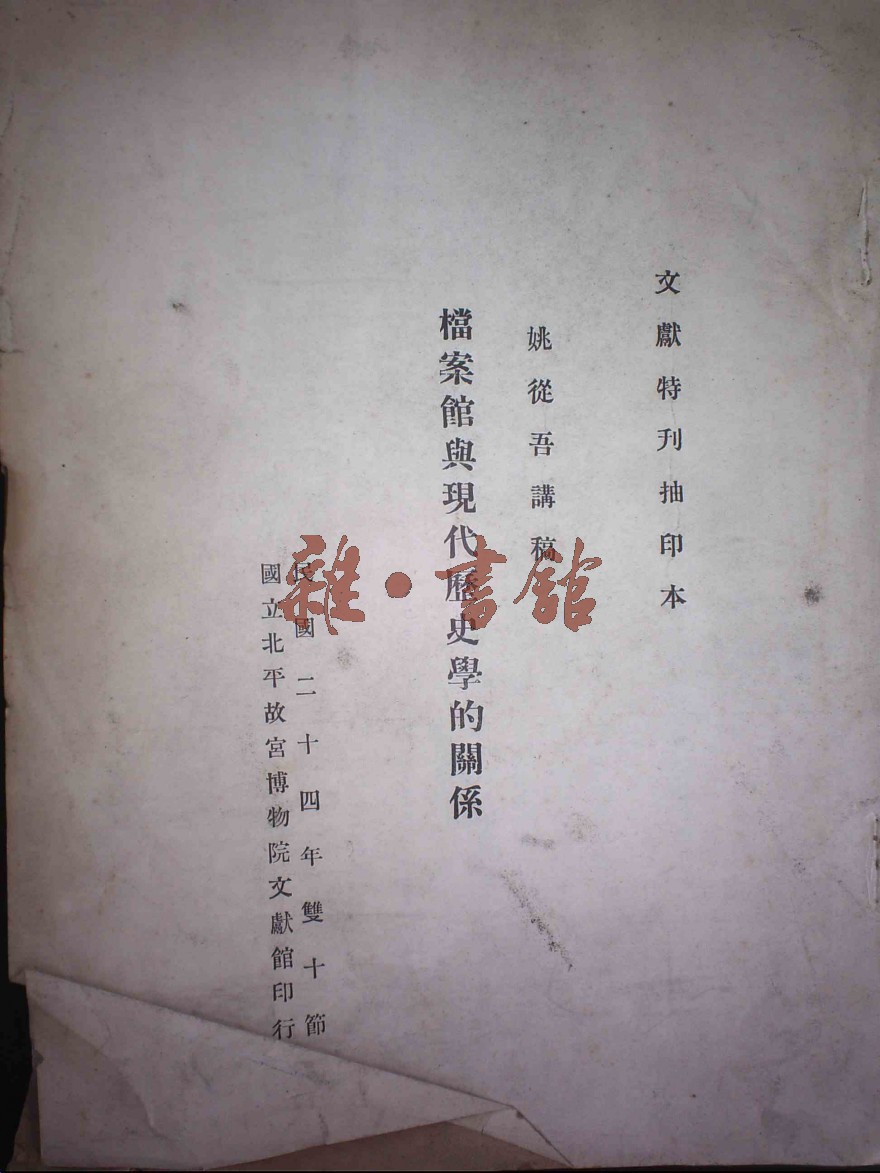 文獻特刊抽印本
姚從吾講稿
檔案館與現代歷史學的關係
民國二十四年雙十節
國立北平故宮博物院文獻館印行
雜·書館